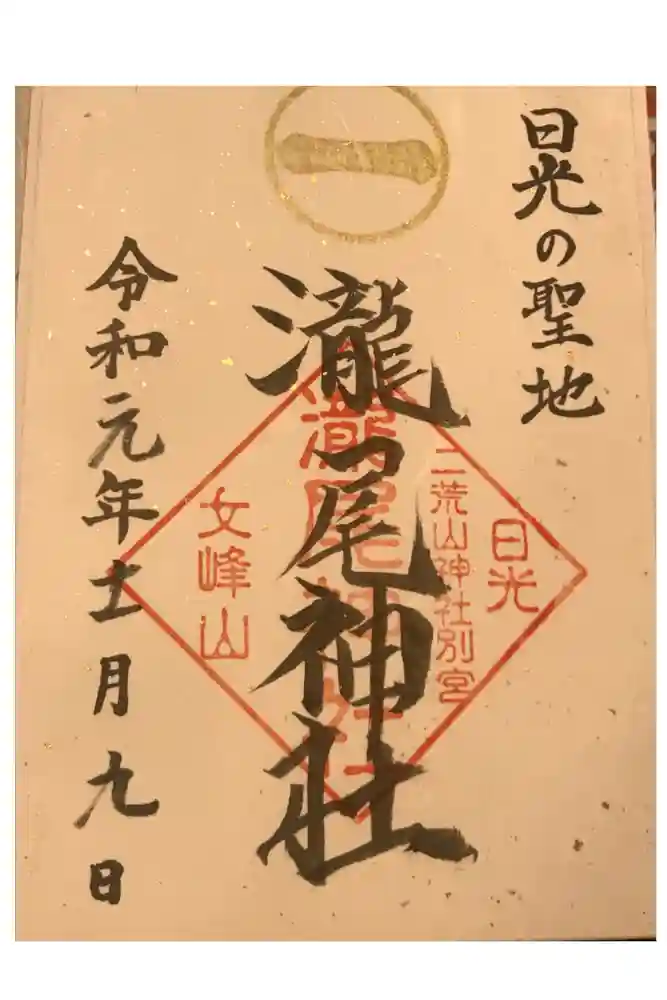 日光の聖地
一
瀧尾神社
日光
二荒山神社別宮
瀧尾神社
女峰山
令和元年十一月九日